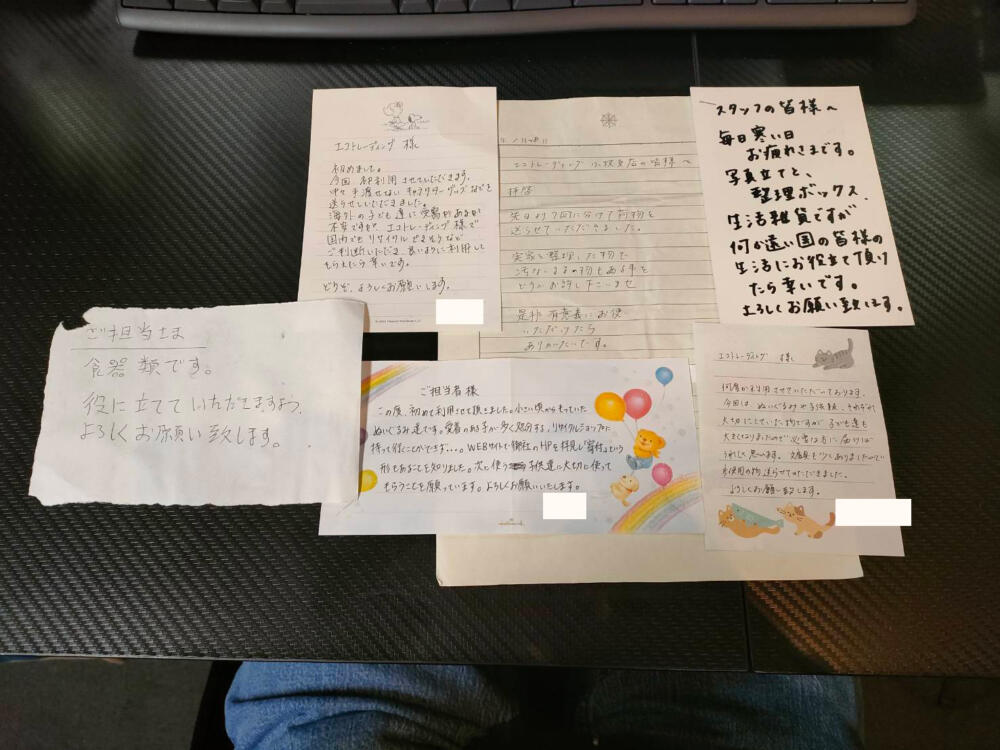 エコトレーディング 様
初めました。
今回 初利用 させていただきます。
中々手渡せない キャラクターグッズなどを
送らせていただきました。
海外の子ども達に 受需があるか
不安ですが エコトレーディング様で
国内でも リサイクル できそうなど
ご判断いただき、良いように利用して
もらえたら幸いです。
どうぞ、よろしくお願いします。
エコトレーディング 小牧支店の皆様へ
拝啓
先日より7回に分けて荷物を
送らせていただきました。
実家を整理した物で
汚ないままの物もある事を
どうかお許し下さいませ
是非 有意義にお使
いいただけたら
ありがたいです。
スタッフの皆様へ
毎日寒い日
お疲れさまです。
写真立てと、
整理ボックス、
生活雑貨ですが
何か遠い国の皆様の
生活にお役立て頂け
たら幸いです。
よろしくお願い致します。
ご担当さま
食器類です。
役に立てていただきますよう、
よろしくお願い致します。
ご担当者様
この度、初めて利用させて頂きました。小さい頃からもっていた
ぬいぐるみ達です。愛着のある子が多く処分する、リサイクルショップに
持って行くことができず・・・。WEBサイトで御社のHPを拝見し「寄付」という
形もあることを知りました。次に使う子供達に大切に使って
もらうことを願っています。よろしくお願いいたします。
エコトレーディング 様
何度か利用させていただいております。
今回は、ぬいぐるみや
大切にしていた物ですが 子ども達も
大きくなりましたので必要な方に届けば
うれしく思います。文房具も少しありましたので
未使用の物 送らせていただきました。
よろしくお願い致します。